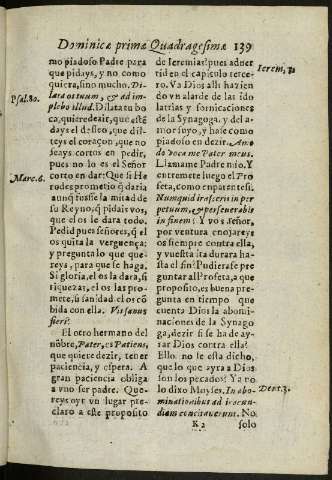 Dominicæ primæ Quadragesimæ 139
mo piadoso Padre para
que pidays, y no como
quiera, sino mucho. Di-
lata os tuum, & ad im-
plebo illud. Dilata tu bo
ca, quiere dezir, que estẽ
days el desseo, que dila-
teys el coraçon, que no
seays cortos en pedir,
pues no lo es el Señor
corto en dar: Que si He
rodes prometio q̃ daria
aunq̃ fuesse la mitad de
su Reyno, q̃ pidais vos,
que el os le dara todo.
Pedid pues señores, q̃ el
os quita la verguença:
y pregunta lo que que-
reys, para que se haga.
Si gloria, el os la dara, si
riquezas, el os las pro-
mete, si sanidad el os cõ
bida con ella. Vis sanus
fieri?
El otro hermano del
nõbre, Pater, es Patiens,
que quiere dezir, tener
paciencia, y espera. A
gran paciencia obliga
a vno ser padre. Que-
reys oyr vn lugar pre-
claro a este proposito
Psal. 80.
Marc. 6.
de Jeremias? pues aduer
tid en el capitulo terce-
ro. Ya Dios alli hazien
do vn alarde de las ido
latrias y fornicaciones
de la Synagoga, y del a-
mor suyo, y hase como
piadoso en dezir. Amo
do voca me Pater meus.
Llamame Padre mio. Y
entremete luego el Pro
feta, como en parentesi.
Numquid irasceris in per
petuum, & perseuerabis
in finem? Y vos Señor,
por ventura enojareys
os siempre contra ella,
y vuestra ira durara ha-
sta el fin? Pudierase pre
guntar al Profeta, a que
proposito, es buena pre-
gunta en tiempo que
cuenta Dios la abomi-
naciones de la Synago
ga, dezir si se ha de ay-
rar Dios contra ella?
Ello no se està dicho,
que lo que ayra a Dios
son los pecados? Ya no
lo dixo Moyses. In abo-
minationibus ad iracun-
diam concitauerunt. No
Ierem. 3.
Deut. 3.
K 2 solo